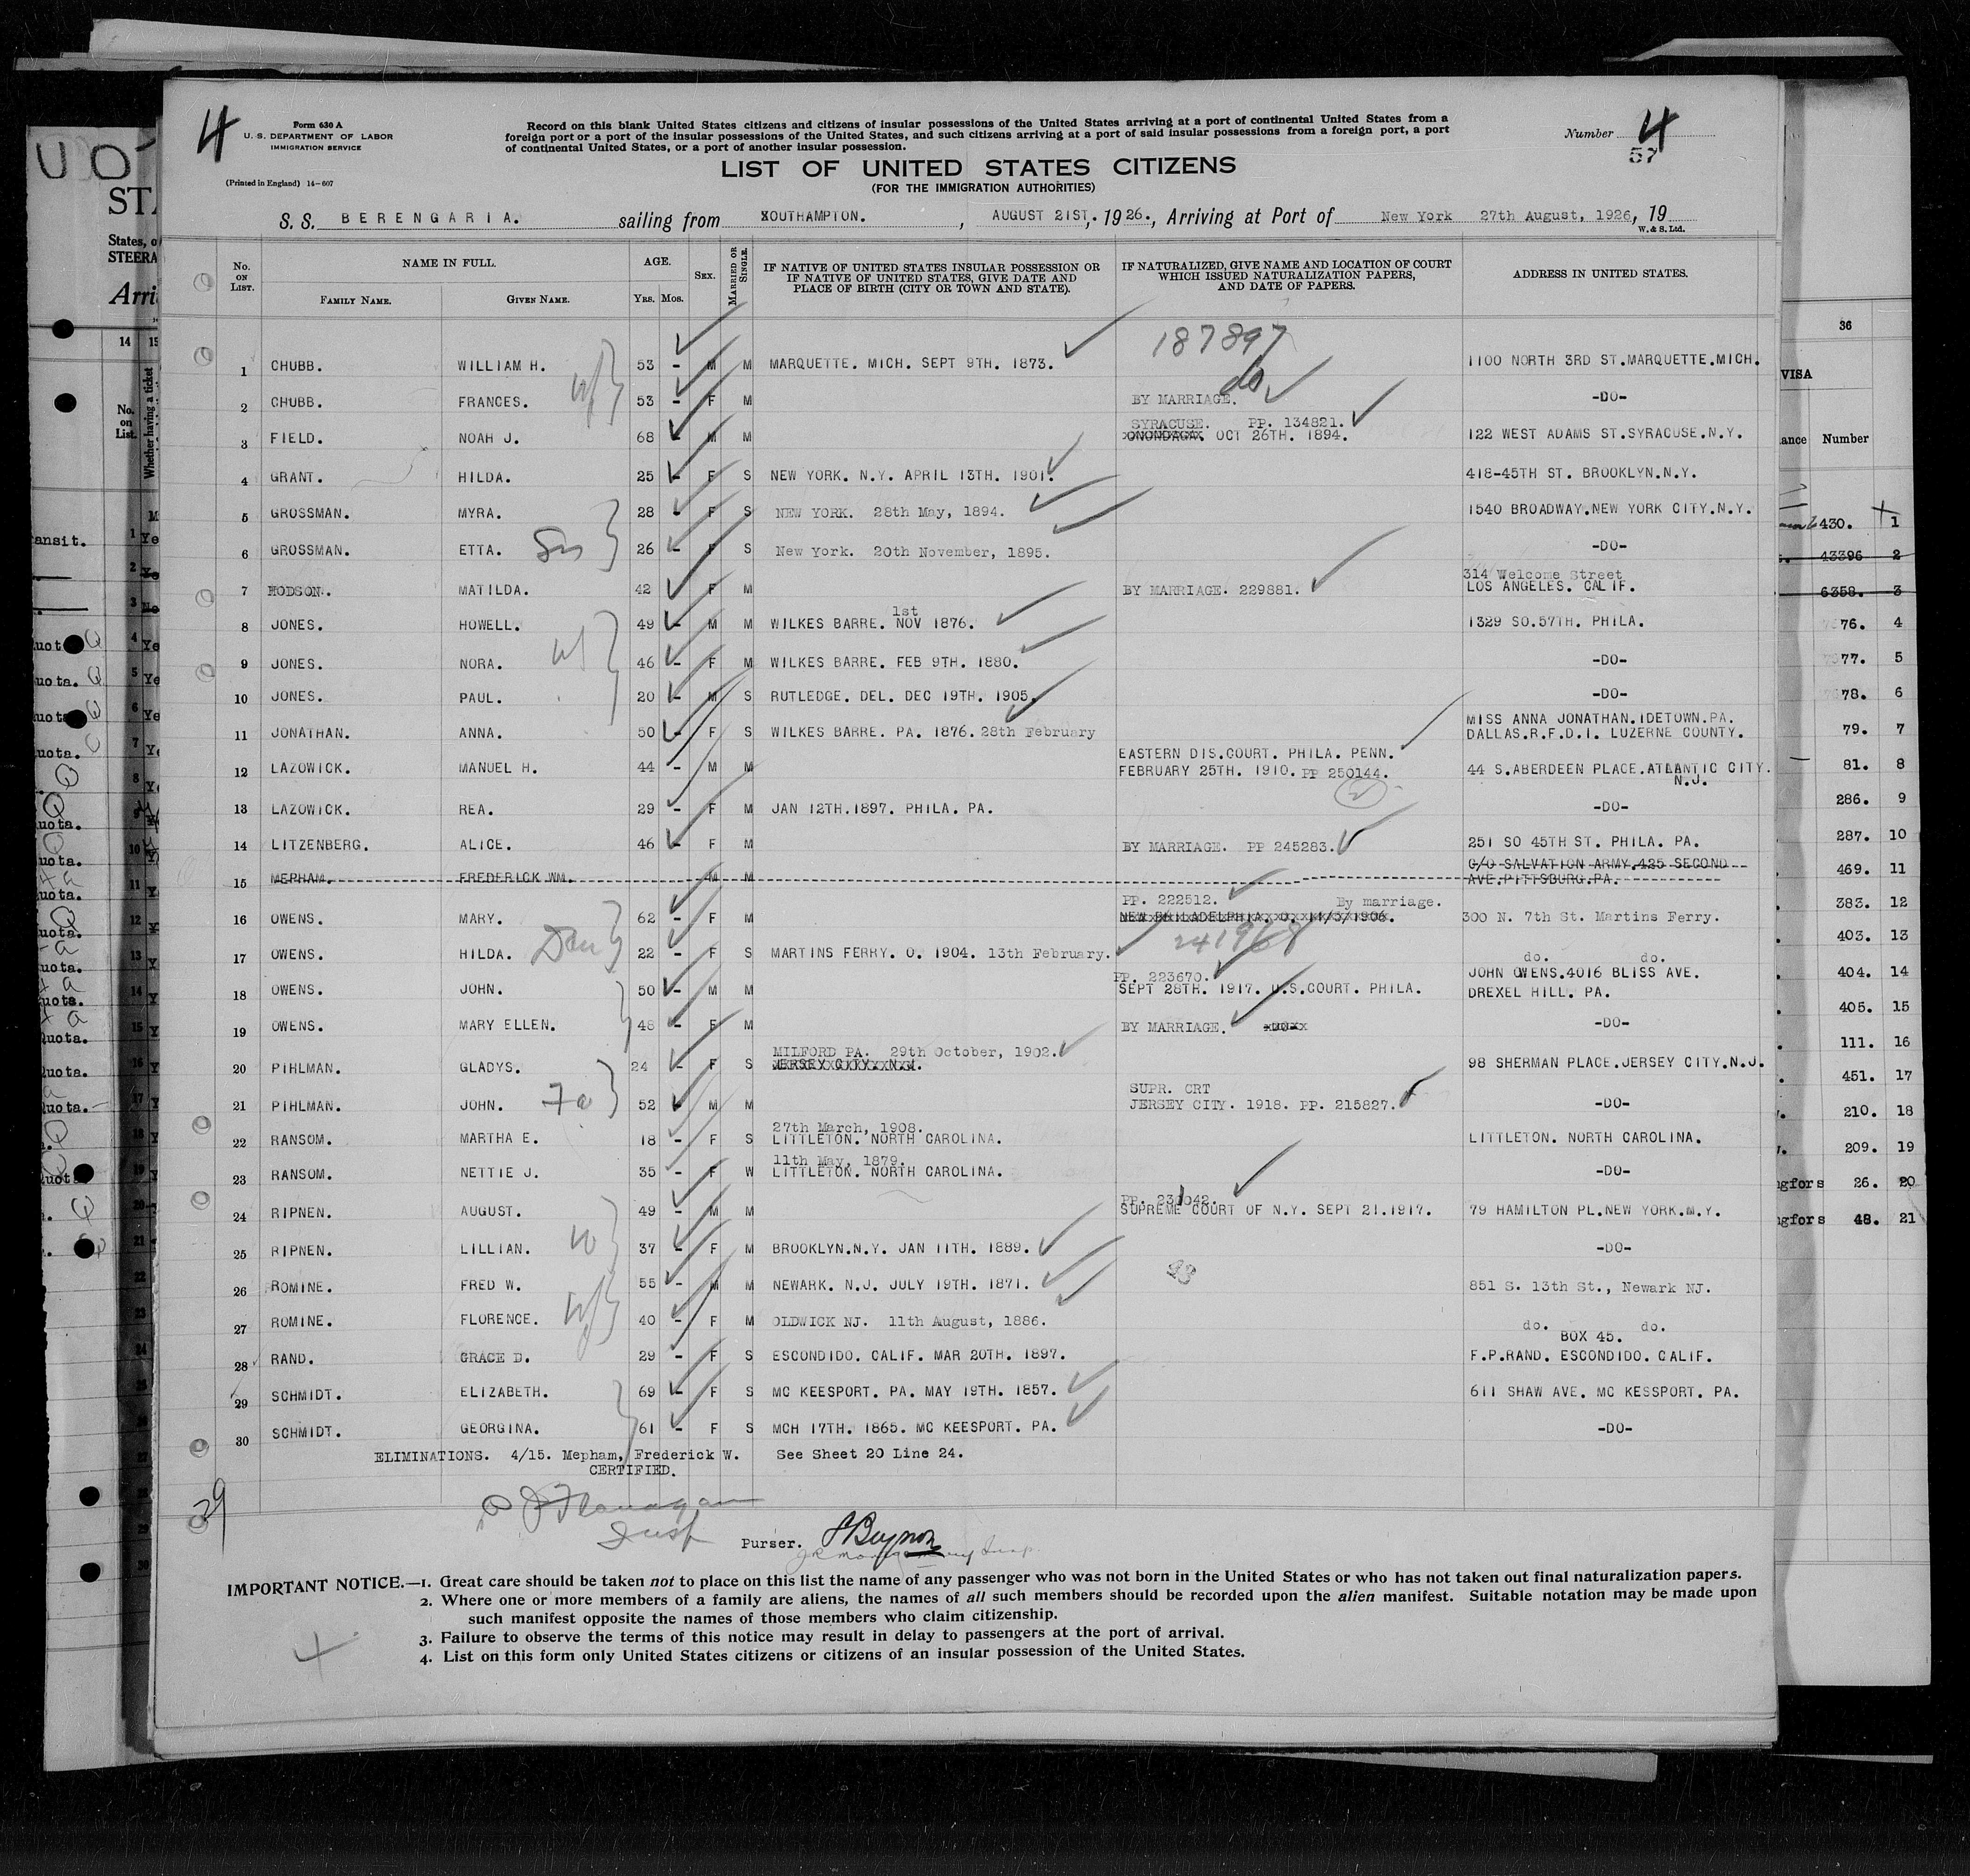 4
Form 630 A
U. S. DEPARTMENT OF LABOR
IMMIGRATION SERVICE
(Printed in England) 14-607
Record on this blank United States citizens and citizens of insular possessions of the United States arriving at a port of continental United States from a
foreign port or a port of the insular possessions of the United States, and such citizens arriving at a port of said insular possessions from a foreign port, a port
of continental United States, or a port of another insular possession.
Number 4
57
LIST OF UNITED STATES CITIZENS
(FOR THE IMMIGRATION AUTHORITIES)
S. S. BERENGARIA. sailing from SOUTHAMPTON. , AUGUST 21ST, 1926., Arriving at Port of New York 27th August, 1926, 19
W. & S. Ltd.
No. on List. NAME IN FULL. AGE. Sex. Married or Single. IF NATIVE OF UNITED STATES INSULAR POSSESSION OR IF NATIVE OF UNITED STATES, GIVE DATE AND PLACE OF BIRTH (CITY OR TOWN AND STATE). IF NATURALIZED, GIVE NAME AND LOCATION OF COURT WHICH ISSUED NATURALIZATION PAPERS, AND DATE OF PAPERS. ADDRESS IN UNITED STATES.
Family Name. Given Name. Yrs. Mos.
187897
1 CHUBB. WILLIAM H. 53 - M M MARQUETTE. MICH. SEPT 9TH. 1873. 1100 NORTH 3RD ST.MARQUETTE.MICH.
wf do
2 CHUBB. FRANCES. 53 - F M BY MARRIAGE. -DO-
SYRACUSE. PP. 134821.
3 FIELD. NOAH J. 68 - M M ONONDAGA. OCT 26TH. 1894. 122 WEST ADAMS ST.SYRACUSE.N.Y.
4 GRANT. HILDA. 25 - F S NEW YORK. N.Y. APRIL 13TH. 1901. 418-45TH ST. BROOKLYN.N.Y.
5 GROSSMAN. MYRA. 28 - F S NEW YORK. 28th May, 1894. 1540 BROADWAY.NEW YORK CITY.N.Y.
6 GROSSMAN. ETTA. Sis 26 - F S New York. 20th November, 1895. -DO-
314 Welcome Street
7 HODSON. MATILDA. 42 - F M BY MARRIAGE. 229881. LOS ANGELES. CALIF.
1st
8 JONES. HOWELL. 49 - M M WILKES BARRE. NOV 1876. 1329 SO.57TH. PHILA.
9 JONES. NORA. wf 46 - F M WILKES BARRE. FEB 9TH. 1880. -DO-
10 JONES. PAUL. 20 - M S RUTLEDGE. DEL. DEC 19TH. 1905. -DO-
MISS ANNA JONATHAN.IDETOWN.PA.
11 JONATHAN. ANNA. 50 - F S WILKES BARRE. PA. 1876. 28th February DALLAS.R.F.D.I. LUZERNE COUNTY.
EASTERN DIS.COURT. PHILA. PENN.
12 LAZOWICK. MANUEL H. 44 - M M FEBRUARY 25TH. 1910. PP 250144. 44 S.ABERDEEN PLACE.ATLANTIC CITY.
N.J.
(2)
13 LAZOWICK. REA. 29 - F M JAN 12TH.1897. PHILA. PA. -DO-
14 LITZENBERG. ALICE. 46 - F M BY MARRIAGE. PP 245283. 251 SO 45TH ST. PHILA. PA.
C/O SALVATION ARMY.425 SECOND
15 MEPHAM. FREDERICK WM. M M AVE.PITTSBURG.PA.
PP. 222512. By marriage.
16 OWENS. MARY. 62 - F M NEW PHILADELPHIA. O. 300 N. 7th St. Martins Ferry.
241968
17 OWENS. HILDA. Dau 22 - F S MARTINS FERRY. O. 1904. 13th February. do. do.
PP. 223670. JOHN OWENS.4016 BLISS AVE.
18 OWENS. JOHN. 50 - M M SEPT 28TH. 1917. U.S.COURT. PHILA. DREXEL HILL. PA.
19 OWENS. MARY ELLEN. 48 - F M BY MARRIAGE. -DO-
MILFORD PA. 29th October, 1902.
20 PIHLMAN. GLADYS. 24 - F S JERSEY CITY. N.J. 98 SHERMAN PLACE.JERSEY CITY.N.J.
SUPR. CRT
21 PIHLMAN. JOHN. Fa 52 - M M JERSEY CITY. 1918. PP. 215827. -DO-
27th March, 1908.
22 RANSOM. MARTHA E. 18 - F S LITTLETON. NORTH CAROLINA. LITTLETON. NORTH CAROLINA.
11th May, 1879.
23 RANSOM. NETTIE J. 35 - F W LITTLETON. NORTH CAROLINA. -DO-
PP. 231042.
24 RIPNEN. AUGUST. 49 - M M SUPREME COURT OF N.Y. SEPT 21.1917. 79 HAMILTON PL.NEW YORK.M.Y.
25 RIPNEN. LILLIAN. W 37 - F M BROOKLYN.N.Y. JAN 11TH. 1889. -DO-
26 ROMINE. FRED W. 55 - M M NEWARK. N.J. JULY 19TH. 1871. 851 S. 13th St., Newark NJ.
27 ROMINE. FLORENCE. wf 40 - F M OLDWICK NJ. 11th August, 1886. do. do.
BOX 45.
28 RAND. GRACE D. 29 - F S ESCONDIDO. CALIF. MAR 20TH. 1897. F.P.RAND. ESCONDIDO. CALIF.
29 SCHMIDT. ELIZABETH. 69 - F S MC KEESPORT. PA. MAY 19TH. 1857. 611 SHAW AVE. MC KESSPORT. PA.
30 SCHMIDT. GEORGINA. 61 - F S MCH 17TH. 1865. MC KEESPORT. PA. -DO-
ELIMINATIONS. 4/15. Mepham, Frederick W. See Sheet 20 Line 24.
CERTIFIED.
29
Flanagan
Insp
Purser.
IMPORTANT NOTICE.—1. Great care should be taken not to place on this list the name of any passenger who was not born in the United States or who has not taken out final naturalization papers.
2. Where one or more members of a family are aliens, the names of all such members should be recorded upon the alien manifest. Suitable notation may be made upon
such manifest opposite the names of those members who claim citizenship.
3. Failure to observe the terms of this notice may result in delay to passengers at the port of arrival.
4. List on this form only United States citizens or citizens of an insular possession of the United States.
36
VISA
Number
430. 1
43396 2
6358. 3
76. 4
77. 5
78. 6
79. 7
81. 8
286. 9
287. 10
469. 11
383. 12
403. 13
404. 14
405. 15
111. 16
451. 17
210. 18
209. 19
26. 20
48. 21